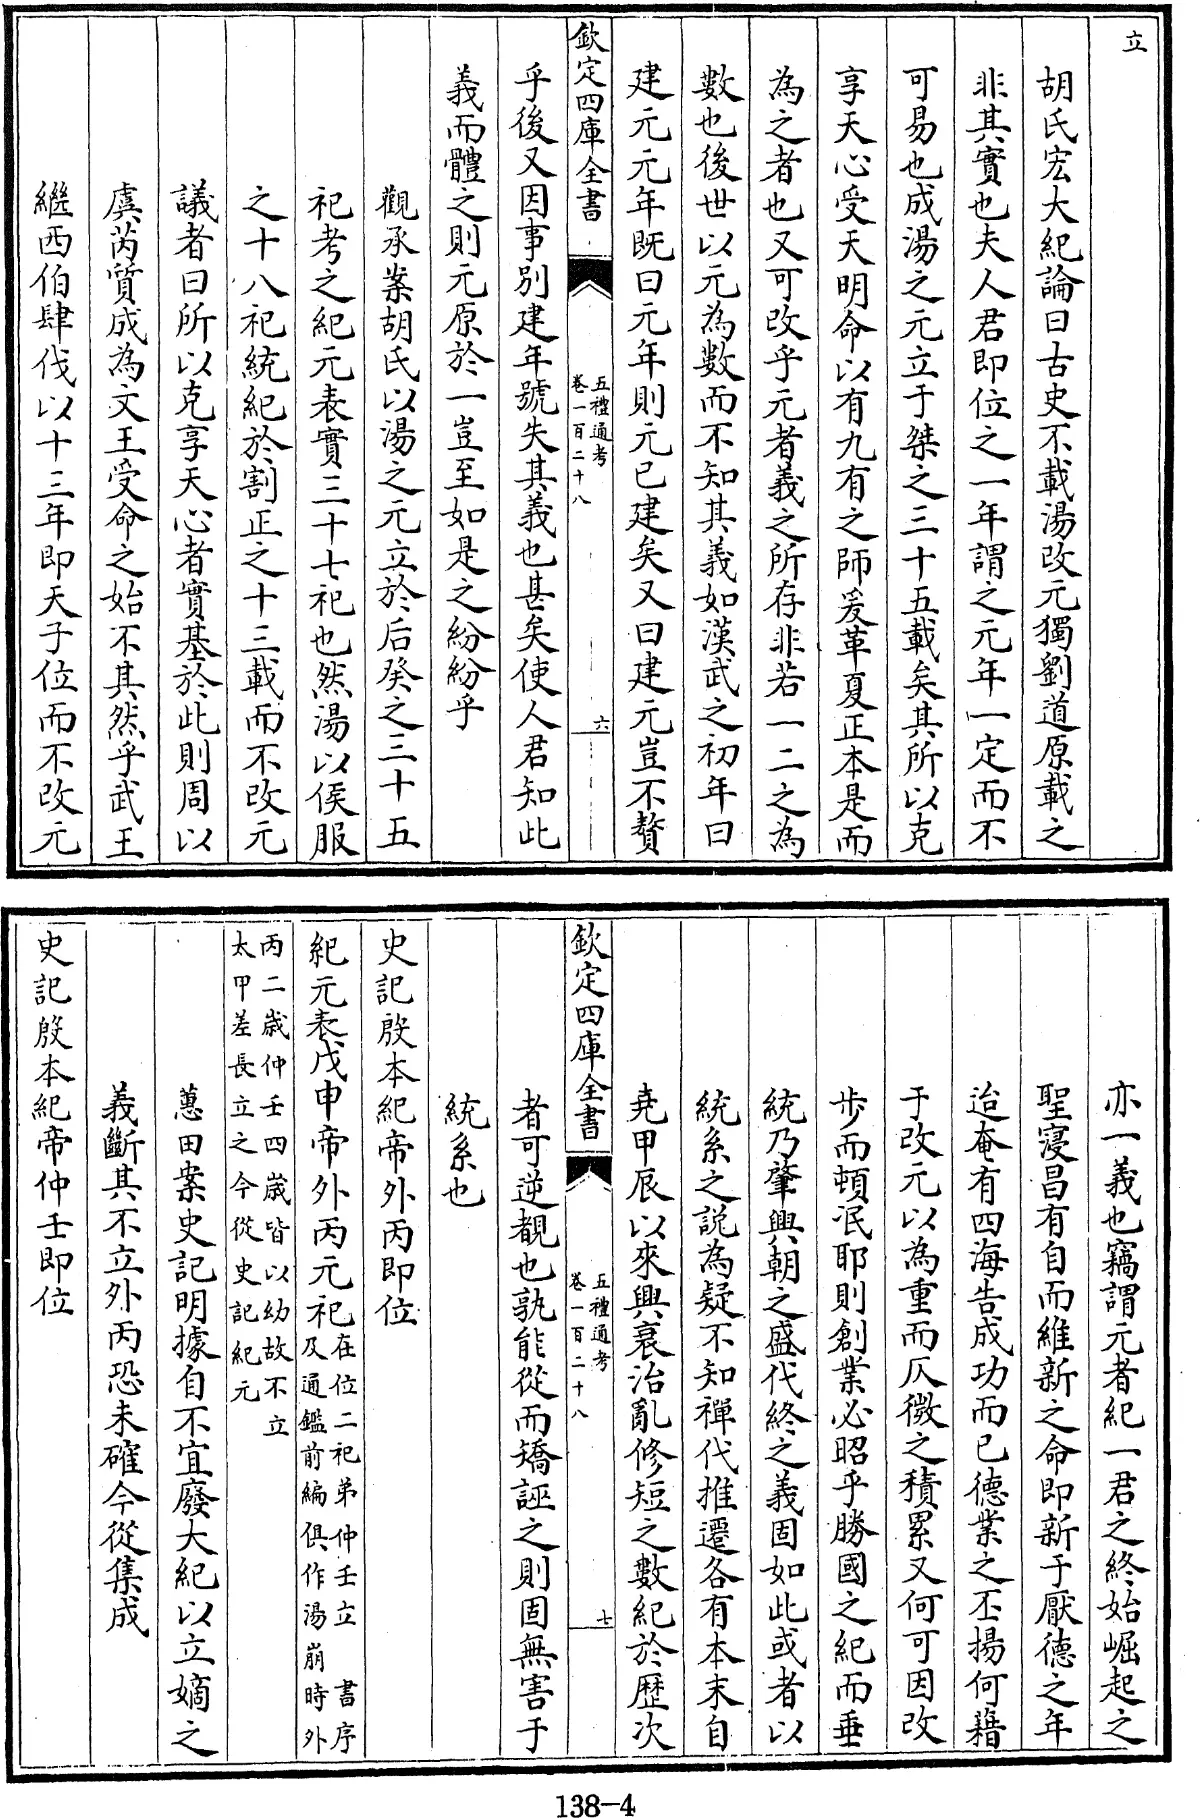 立
胡氏宏大紀論曰古史不載湯改元獨劉道原載之
非其實也夫人君即位之一年謂之元年一定而不
可易也成湯之元立于桀之三十五載矣其所以克
享天心受天明命以有九有之師爰革夏正本是而
為之者也又可改乎元者義之所存非若一二之為
數也後世以元為數而不知其義如漢武之初年曰
建元元年既曰元年則元已建矣又曰建元豈不贅
欽定四庫全書
五禮通考
卷一百二十八
六
乎後又因事別建年號失其義也甚矣使人君知此
義而體之則元原於一豈至如是之紛紛乎
觀承案胡氏以湯之元立於后癸之三十五
祀考之紀元表實三十七祀也然湯以侯服
之十八祀統紀於割正之十三載而不改元
議者曰所以克享天心者實基於此則周以
虞芮質成為文王受命之始不其然乎武王
繼西伯肆伐以十三年即天子位而不改元
亦一義也竊謂元者紀一君之終始崛起之
聖寖昌有自而維新之命即新于厭德之年
迨奄有四海告成功而已德業之丕揚何藉
于改元以為重而仄微之積累又何可因改
步而頓泯耶則創業必昭乎勝國之紀而垂
統乃肇興朝之盛代終之義固如此或者以
統系之說為疑不知禪代推遷各有本末自
堯甲辰以來興衰治亂修短之數紀於歷次
欽定四庫全書
五禮通考
卷一百二十八
七
者可逆覩也孰能從而矯誣之則固無害于
統系也
史記殷本紀帝外丙即位
紀元表戊申帝外丙元祀在位二祀弟仲壬立 書序
及通鑑前編俱作湯崩時外
丙二歲仲壬四歲皆以幼故不立
太甲差長立之今從史記紀元
蕙田案史記明據自不宜廢大紀以立嫡之
義斷其不立外丙恐未確今從集成
史記殷本紀帝仲壬即位
138-4